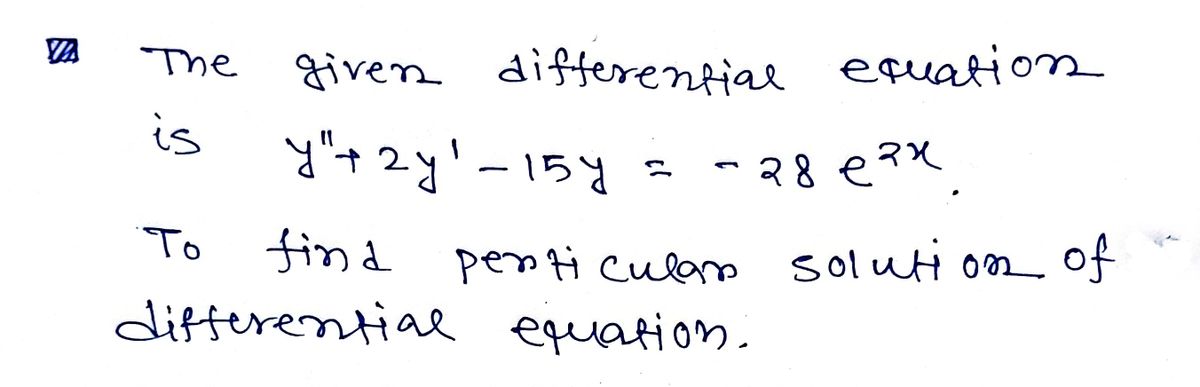 The given differential equation
is y"+2y'-15y = -28 e²ˣ.
To find perticular solution of
differential equation.